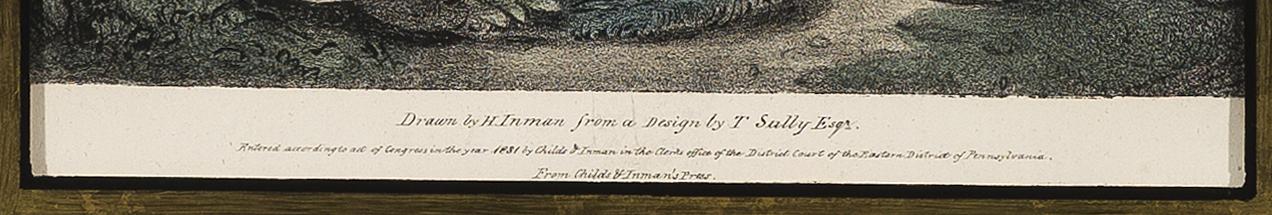 Drawn by H. Inman from a Design by T Sully Esqr.
Entered according to act of Congress in the year 1831 by Childs & Inman in the Clerks office of the District Court of the Eastern District of Pennsylvania.
From Childs & Inman's Press.